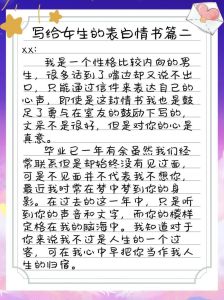 写给女生的表白情书篇二
xx:
我是一个性格比较内向的男
生，很多话到了嘴边却又说不出
口，只能通过信件来表达自己的
心声，即使是这封情书我也是鼓
足了勇气在室友的鼓励下写的，
文采不是很好，但是对你的心是
真意。
毕业已一年有余虽然我们经
常联系但是却始终没有见过面，
可是不见面并不代表我不想你，
最近我时常在梦中梦到你的身
影。在过去的这一年中，只是听
到你的声音和文字，而你的模样
定格在我的脑海中。我知道对于
你来说我不过是人生的一个过
客，可在我心中早把你当作我人
生的归宿。